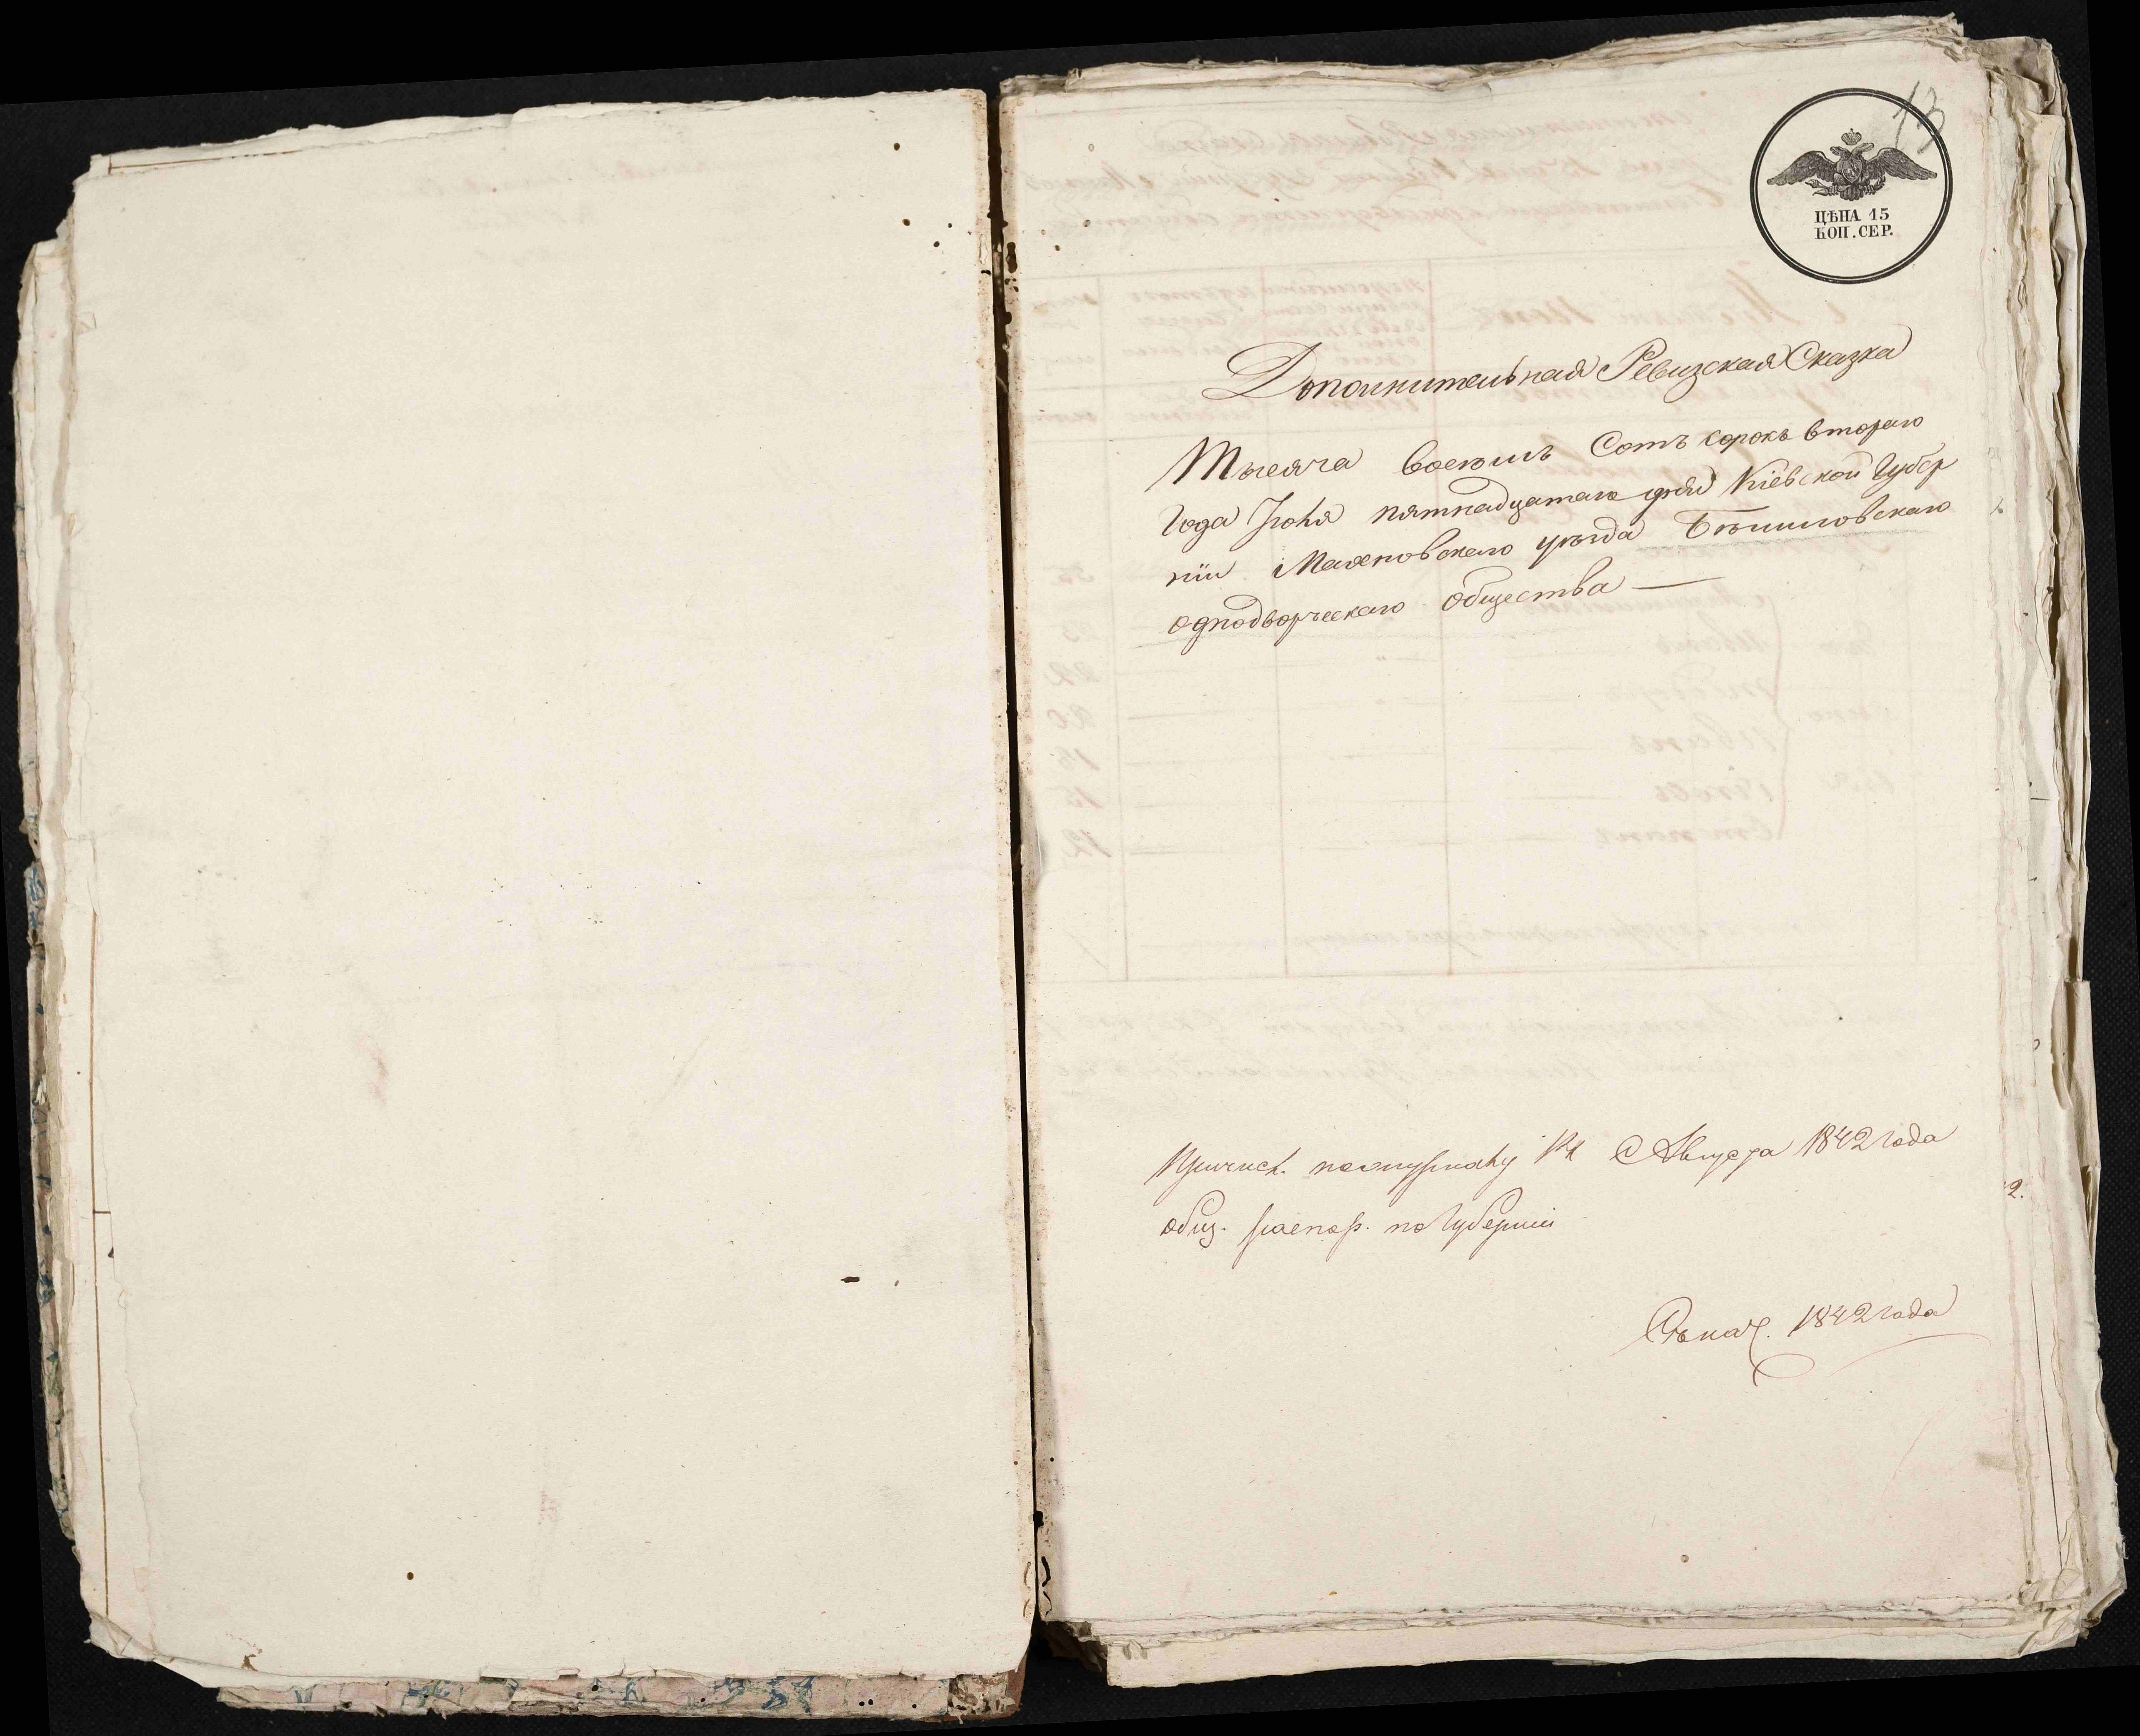 13
ЦѢНА 15
КОП. СЕР.
Дополнительная Ревизская Сказка
Тысяча восемь Сотъ сорокъ втораго
Года Іюня пятнадцатаго дня Кіевской Губер
ніи Махновскаго уѣзда Бѣлиловскаго
однодворческаго Общества —
Августа 1842 года
общ. распор. по Губерніи
1842 года
2.